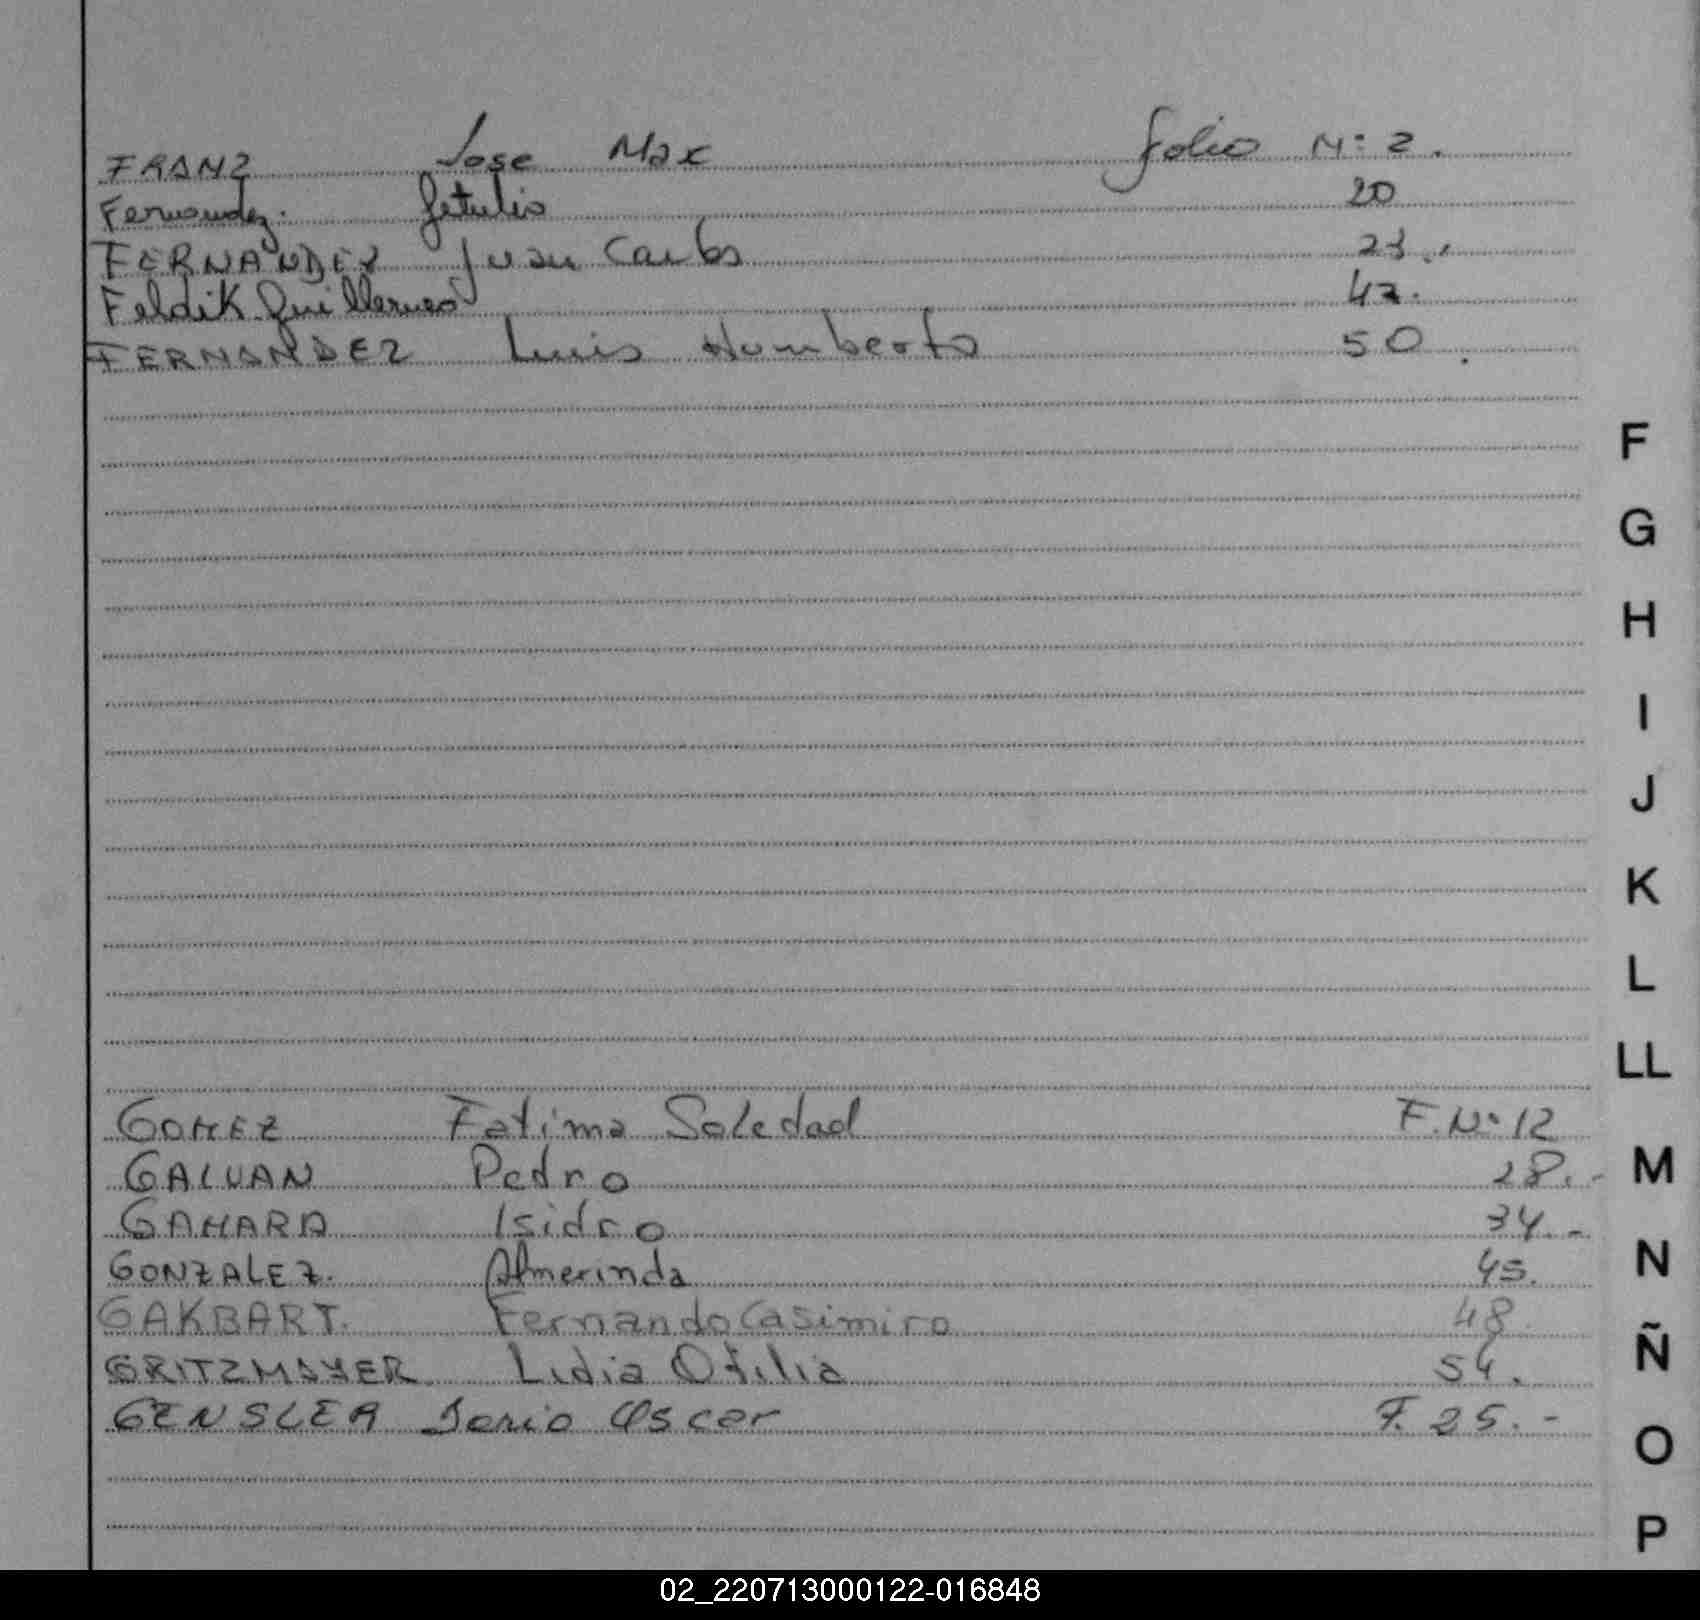 FRANZ Jose Max folio Nº 2.
Fernandez. Getulio 20
FERNANDEZ Juan Carlos 23.
Feldik Guillermo 47.
FERNANDEZ Luis Humberto 50.
F
G
H
I
J
K
L
LL
GOMEZ Fatima Soledad F. Nº 12
GALVAN Pedro 28.-
M
GAMARA Isidro 34.-
GONZALEZ. Almerinda 45.
N
GAKBART. Fernando Casimiro 48.
Ñ
GRITZMAYER Lidia Otilia 54.
GENSLER Oscar F. 25.-
O
P
02_220713000122-016848